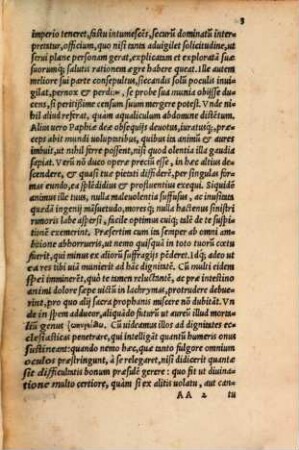 3
imperio teneret, fastu intumescẽs, securũ dominatũ inter
pretitur, officium, quo nisi tanta aduigilet solicitudine, ut
serui plane personam gerat, explicatam et exploratã sua
suorumq; salutis rationem agre habere queat. Ille autem
meliore sui parte consepultus, seccandis solũ poculis inui
gilat, pernox & perdiu, se probe sua munia obijsse du
cens, si peritissime censum suum mergere potest. Vnde ni
hil aliud referat, quàm aqualiculum abdomine distẽtum.
Alius uero Paphiæ deæ obsequijs deuotus, iuratusq;, præ
ceps abit mundi uoluptatibus, quibus ita animũ & aures
imbuit, ut nihil ferre possent, nisi quod olentia illa gaudia
sepiat. Verũ nõ duco operæ preciũ esse, in hæc altius de
scendere, & quasi tuæ pietati diffiderẽ, per singulas for
mas eundo, ea splẽdidius & profluentius exequi. Siquidẽ
animus ille tuus, nulla maleuolentia suffusus, ac inusita
ta quadã ingenij mãsuetudo, moresq;, nulla hactenus sinistri
rumoris labe aspersi, facile optimu cuiq; talẽ de te suspi
tionẽ exemerint. Præsertim cum ita semper ab omni am
bitione abhorrueris, ut nemo quisquã in toto tuorũ cœtu
fuerit, qui minus ex aliorũ suffragijs pẽderet. Idq;, adeo ut
ea res tibi uiã munierit ad hãc dignitatẽ. Cũ multi eidem
spei inniterẽt, quã te tamen reluctantẽ, ac præ intestino
animi dolore sæpe uictũ in lachrymas, protrudere debue
rint, pro quo alij sacra prophanis miscere nõ dubitãt. Vn
de in spem adducor, aliquãdo futurũ ut aureũ illud morta
lium genus Cũ uideamus illos ad dignitates ec
clesiasticas penetrare, qui intelligãt quantũ humeris onus
sustineant: quando nemo hæc, quæ tanto fulgore omnium
oculos præstringunt, à se relegaret, nisi didicerit quantæ
sit difficultatis bonum præsulẽ gerere: quo fit ut diuina
tione multo certiore, quàm si ex alitis uolatu, aut can
AA 2 tu